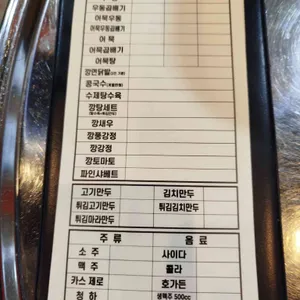 우동곱배기
어묵우동
어묵우동곱배기
어 묵
어묵곱배기
어묵탕
깡면닭발
콩국수
수제탕수육
깡탕세트
깡새우
깡풍강정
깡강정
깡토마토
파인샤베트
고기만두 김치만두
튀김고기만두 튀김김치만두
튀김마라만두
주 류 음 료
소 주 사이다
맥 주 콜라
카스 제로 호가든
청 하 생맥주 500cc